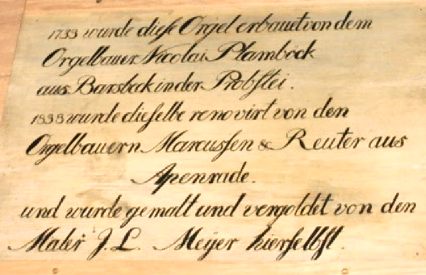 1733 wurde dieſe Orgel erbauet von dem
Orgelbauer Nicolai Plambeck
aus Barsbeck in der Probſtei.
1838 wurde dieſelbe renovirt von den
Orgelbauern Marcuſsen & Reuter aus
Apenrade.
und wurde gemalt und vergoldet von den
Maler J. L. Meijer hierſelbſt.